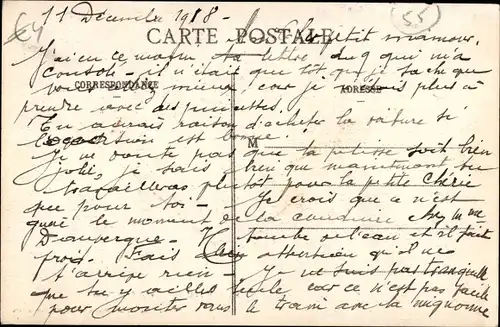 11 Décembre 1918 - Ma Chère petit mamour.
CARTE POSTALE
J'ai eu ce matin ta lettre du 9 qui m'a
consolé - il n'était que tôt que je sache que
CORRESPONDANCE
ADRESSE
va mieux, car je suis plus à
prendre avec des pincettes.
Tu aurais raison d'acheter la voiture si
l'occasion est bonne.
M
Je ne doute pas que la pelisse soit bien
jolie, je sais bien que maintenant tu
travailleras plutôt pour la petite Chérie
que pour toi - Je crois que ce n'est
guère le moment de la conduire
D'auvergne - tombe de l'eau et il fait
froid - Fais attention qu'il ne
t'arrive rien - Je ne suis pas tranquille
que tu y ailles seule car ce n'est pas facile
pour monter dans le train avec la mignonne